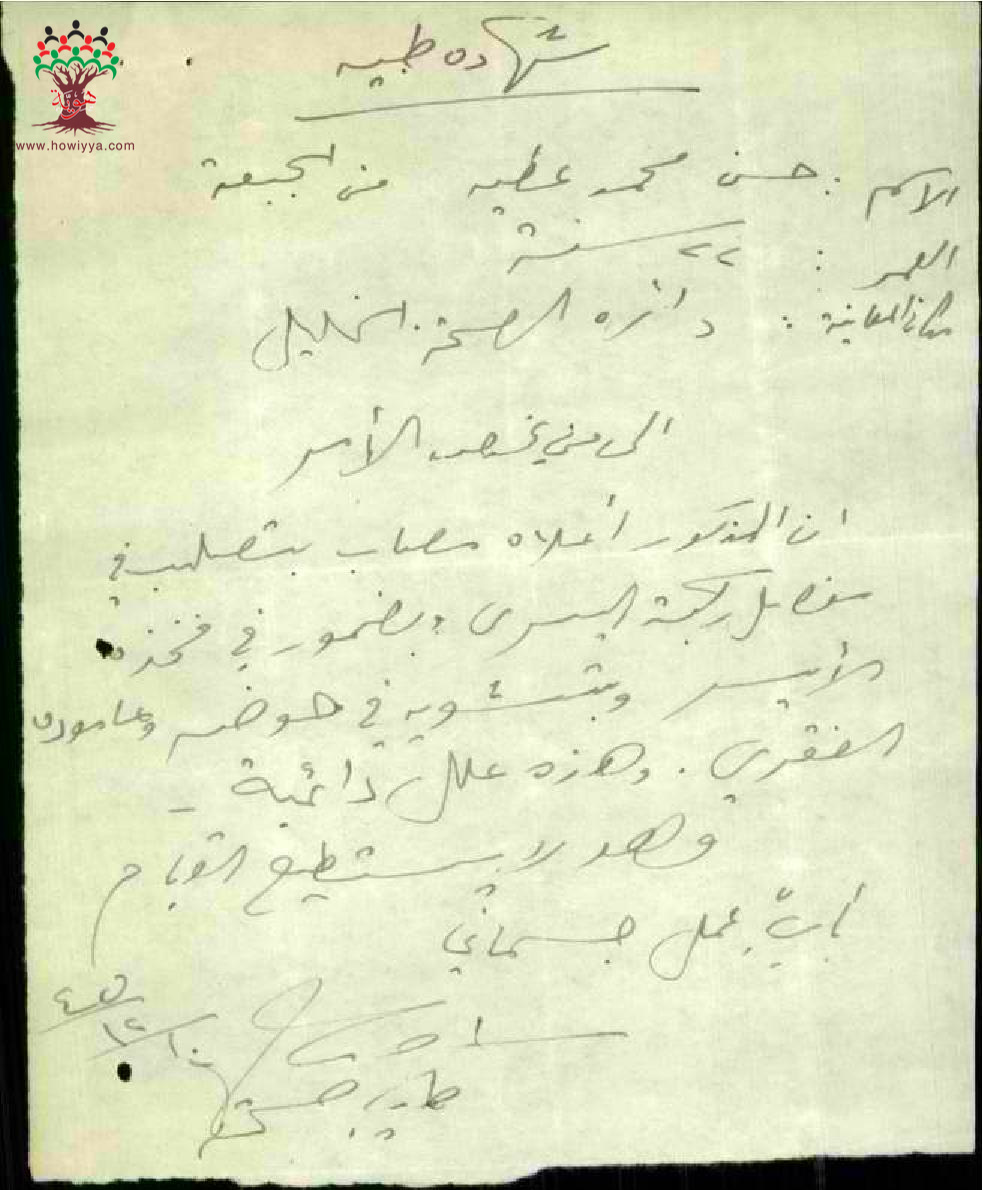 هوية
www.howiyya.com
شهاده طبيه
الاسم : حسن محمد عطيه من الجبعة
العمر : ٢٢ سنة
مكان المعاينة : دائره الصحة . الخليل
الى من يخصه الأمر
ان المذكور أعلاه مصاب بتصلب في
مفاصل ركبته اليسرى وبضمور في فخذه
الأيسر وبتشويه في حوضه وعاموده
الفقري . وهذه علل دائمية -
وهو لا يستطيع القيام
بأي عمل جسماني
طبيب صحة